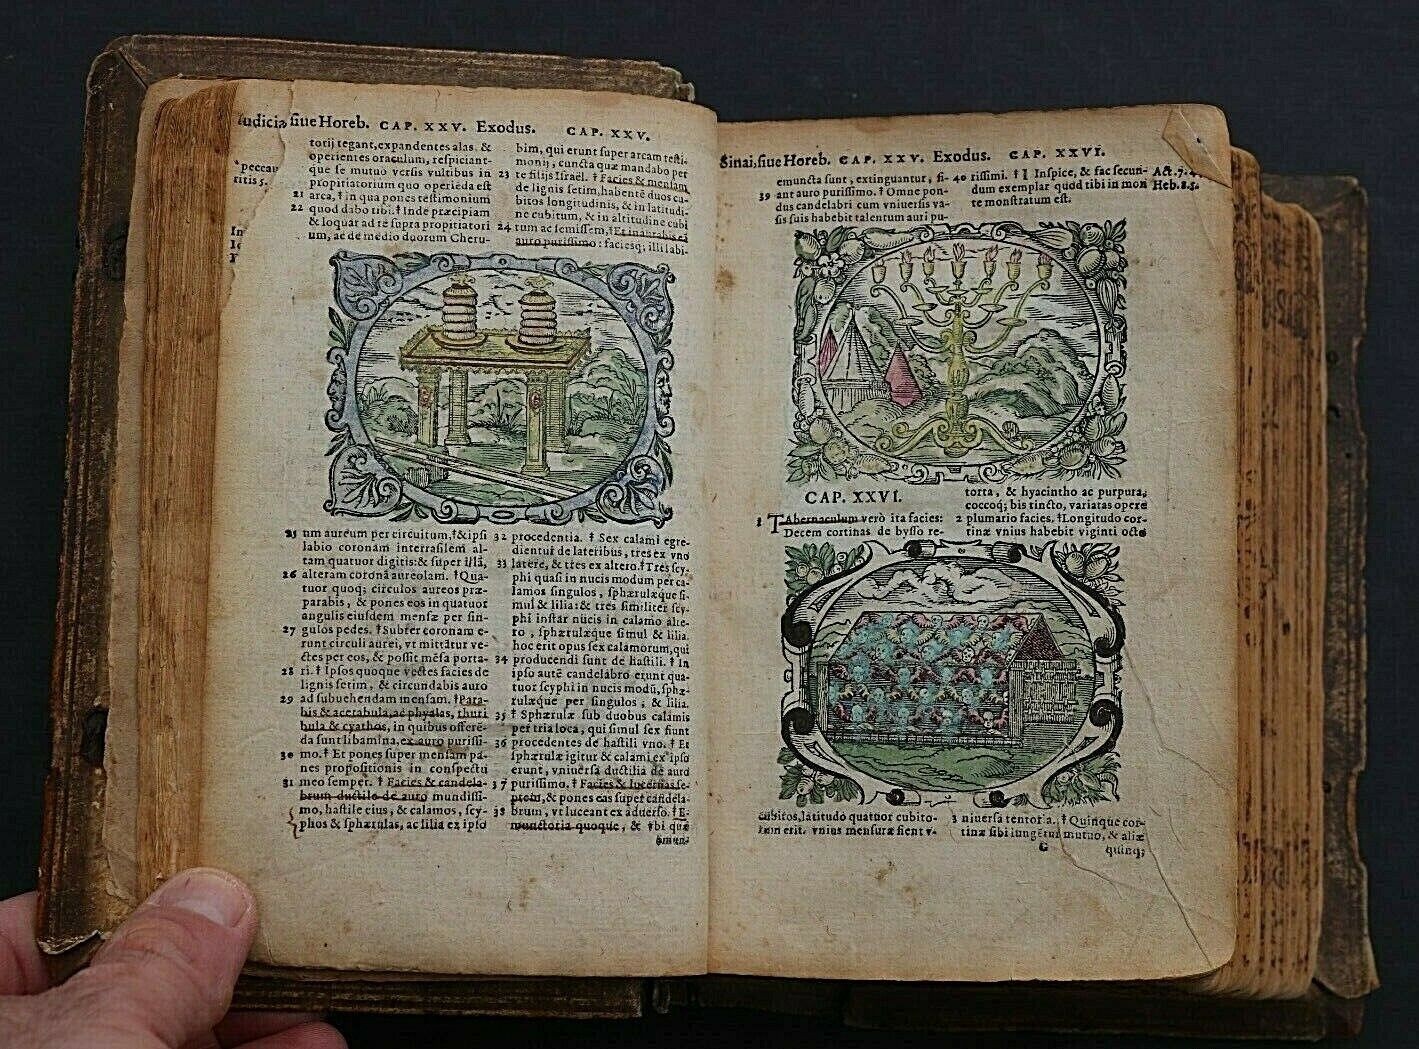 Iudicia, siue Horeb. CAP. XXV. Exodus. CAP. XXV.
peccau
ritis 5.
torij tegant, expandentes alas. &
operientes oraculum, respiciant-
que se mutuo versis vultibus in
propitiatorium quo operiēda est
21 arca, † in qua pones testimonium
22 quod dabo tibi. † Inde præcipiam
& loquar ad te supra propitiatori
um, ac de medio duorum Cheru-
bim, qui erunt super arcam testi-
monij, cuncta quæ mandabo per
23 te filijs Israël. † Facies & mensam
de lignis setim, habentē duos cu-
bitos longitudinis, & in latitudi-
ne cubitum, & in altitudine cubi
24 tum ac semissem, † Et inaurabis eā
auro purissimo: faciesq; illi labi-
25 um aureum per circuitum, † & ipsi
labio coronam interrasilem al-
tam quatuor digitis: & super illā,
26 alteram coronā aureolam. † Qua-
tuor quoq; circulos aureos præ-
parabis, & pones eos in quatuor
angulis eiusdem mensæ per sin-
27 gulos pedes. † Subter coronam e-
runt circuli aurei, vt mittātur ve-
ctes per eos, & possit mēsa porta-
28 ri. † Ipsos quoque vectes facies de
lignis setim, & circundabis auro
29 ad subuehendam mensam. † Para-
bis & acetabula, ac phyalas, thuri
bula & cyathos, in quibus offerē-
da sunt libamina, ex auro purissi-
30 mo. † Et pones super mensam pa-
nes propositionis in conspectu
31 meo semper. † Facies & candela-
brum ductile de auro mundissi-
mo, hastile eius, & calamos, scy-
phos & sphærulas, ac lilia ex ipso
32 procedentia. † Sex calami egre-
dientur de lateribus, tres ex vno
33 latere, & tres ex altero. † Tres scy-
phi quasi in nucis modum per ca-
lamos singulos, sphærulæque si-
mul & lilia: & tres similiter scy-
phi instar nucis in calamo alte-
ro, sphærulæque simul & lilia.
hoc erit opus sex calamorum, qui
34 producendi sunt de hastili. † In
ipso autē candelabro erunt qua-
tuor scyphi in nucis modū, sphæ-
rulæque per singulos, & lilia.
35 † Sphærulæ sub duobus calamis
per tria loca, qui simul sex fiunt
36 procedentes de hastili vno. † Et
sphærulæ igitur & calami ex ipso
erunt, vniuersa ductilia de auro
37 purissimo. † Facies & lucernas se-
ptem, & pones eas super candela-
38 brum, vt luceant ex aduerso. † E-
munctoria quoque, & vbi quæ
Sinai, siue Horeb. CAP. XXV. Exodus. CAP. XXVI.
emuncta sunt, extinguantur, fi-
39 ant auro purissimo. † Omne pon-
dus candelabri cum vniuersis va-
sis suis habebit talentum auri pu-
40 rissimi. † Inspice, & fac secun-
dum exemplar quod tibi in mon
te monstratum est.
Act. 7.
Heb. 8.5.
CAP. XXVI.
1 TAbernaculum verò ita facies:
Decem cortinas de bysso re-
torta, & hyacintho ac purpura,
coccoq; bis tincto, variatas opere
2 plumario facies. † Longitudo cor-
tinæ vnius habebit viginti octo
cubitos, latitudo quatuor cubito-
rum erit. vnius mensuræ fient v-
3 niuersa tentoria. † Quinque cor-
tinæ sibi iungētur mutuo, & aliæ
G quinq;